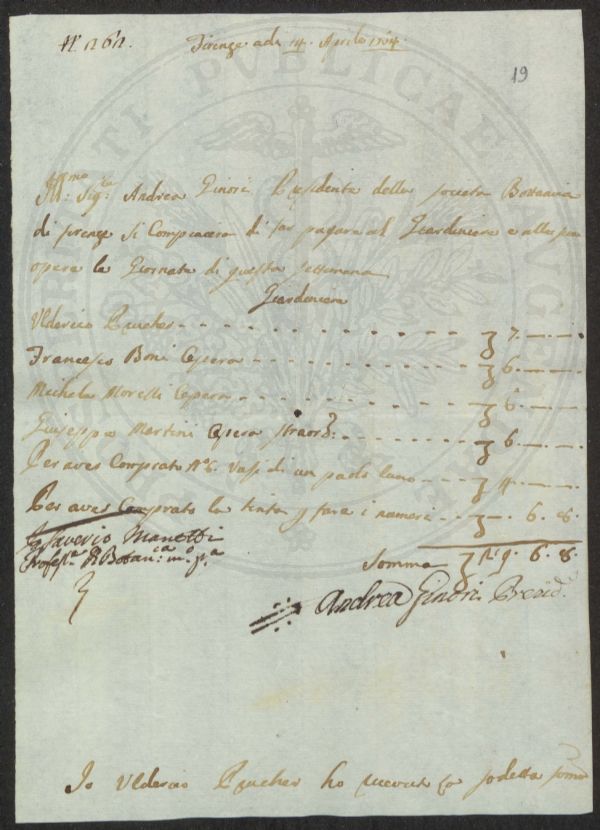 Firenze adi 14. Aprile 1764.
19
Ill:mo Sig:re Andrea Ginori Presidente della società Bottanica
di firenze si Compiacerà di far pagare al Giardiniere e alle sue
opere le Giornate di questa settimana
Giardiniere
Ulderico Prucher 7. — —
Francesco Boni Opera 6. — —
Michele Morelli Opera 6. — —
Giuseppe Martini Opera straord: 6. — —
Per aver Comprato No 6. Vasi di un paolo l'uno 4. — —
Per aver Comprato la tinta p fare i numeri — 6. 8.
Saverio Manetti
Profess.e di Botan:ca
Somma 29. 6. 8.
Andrea Ginori Presid.e
Io Ulderico Prucher ho ricevuto la sodetta somma